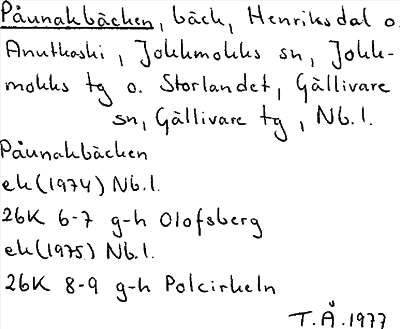 Påunakbäcken, bäck, Henriksdal o.
Anutkaski, Jokkmokks sn, Jokk-
mokks tg o. Storlandet, Gällivare
sn, Gällivare tg, Nb.l.
Påunakbäcken
ek(1974) Nb.l.
26K 6-7 g-h Olofsberg
ek(1975) Nb.l.
26K 8-9 g-h Polcirkeln
T.Å.1977